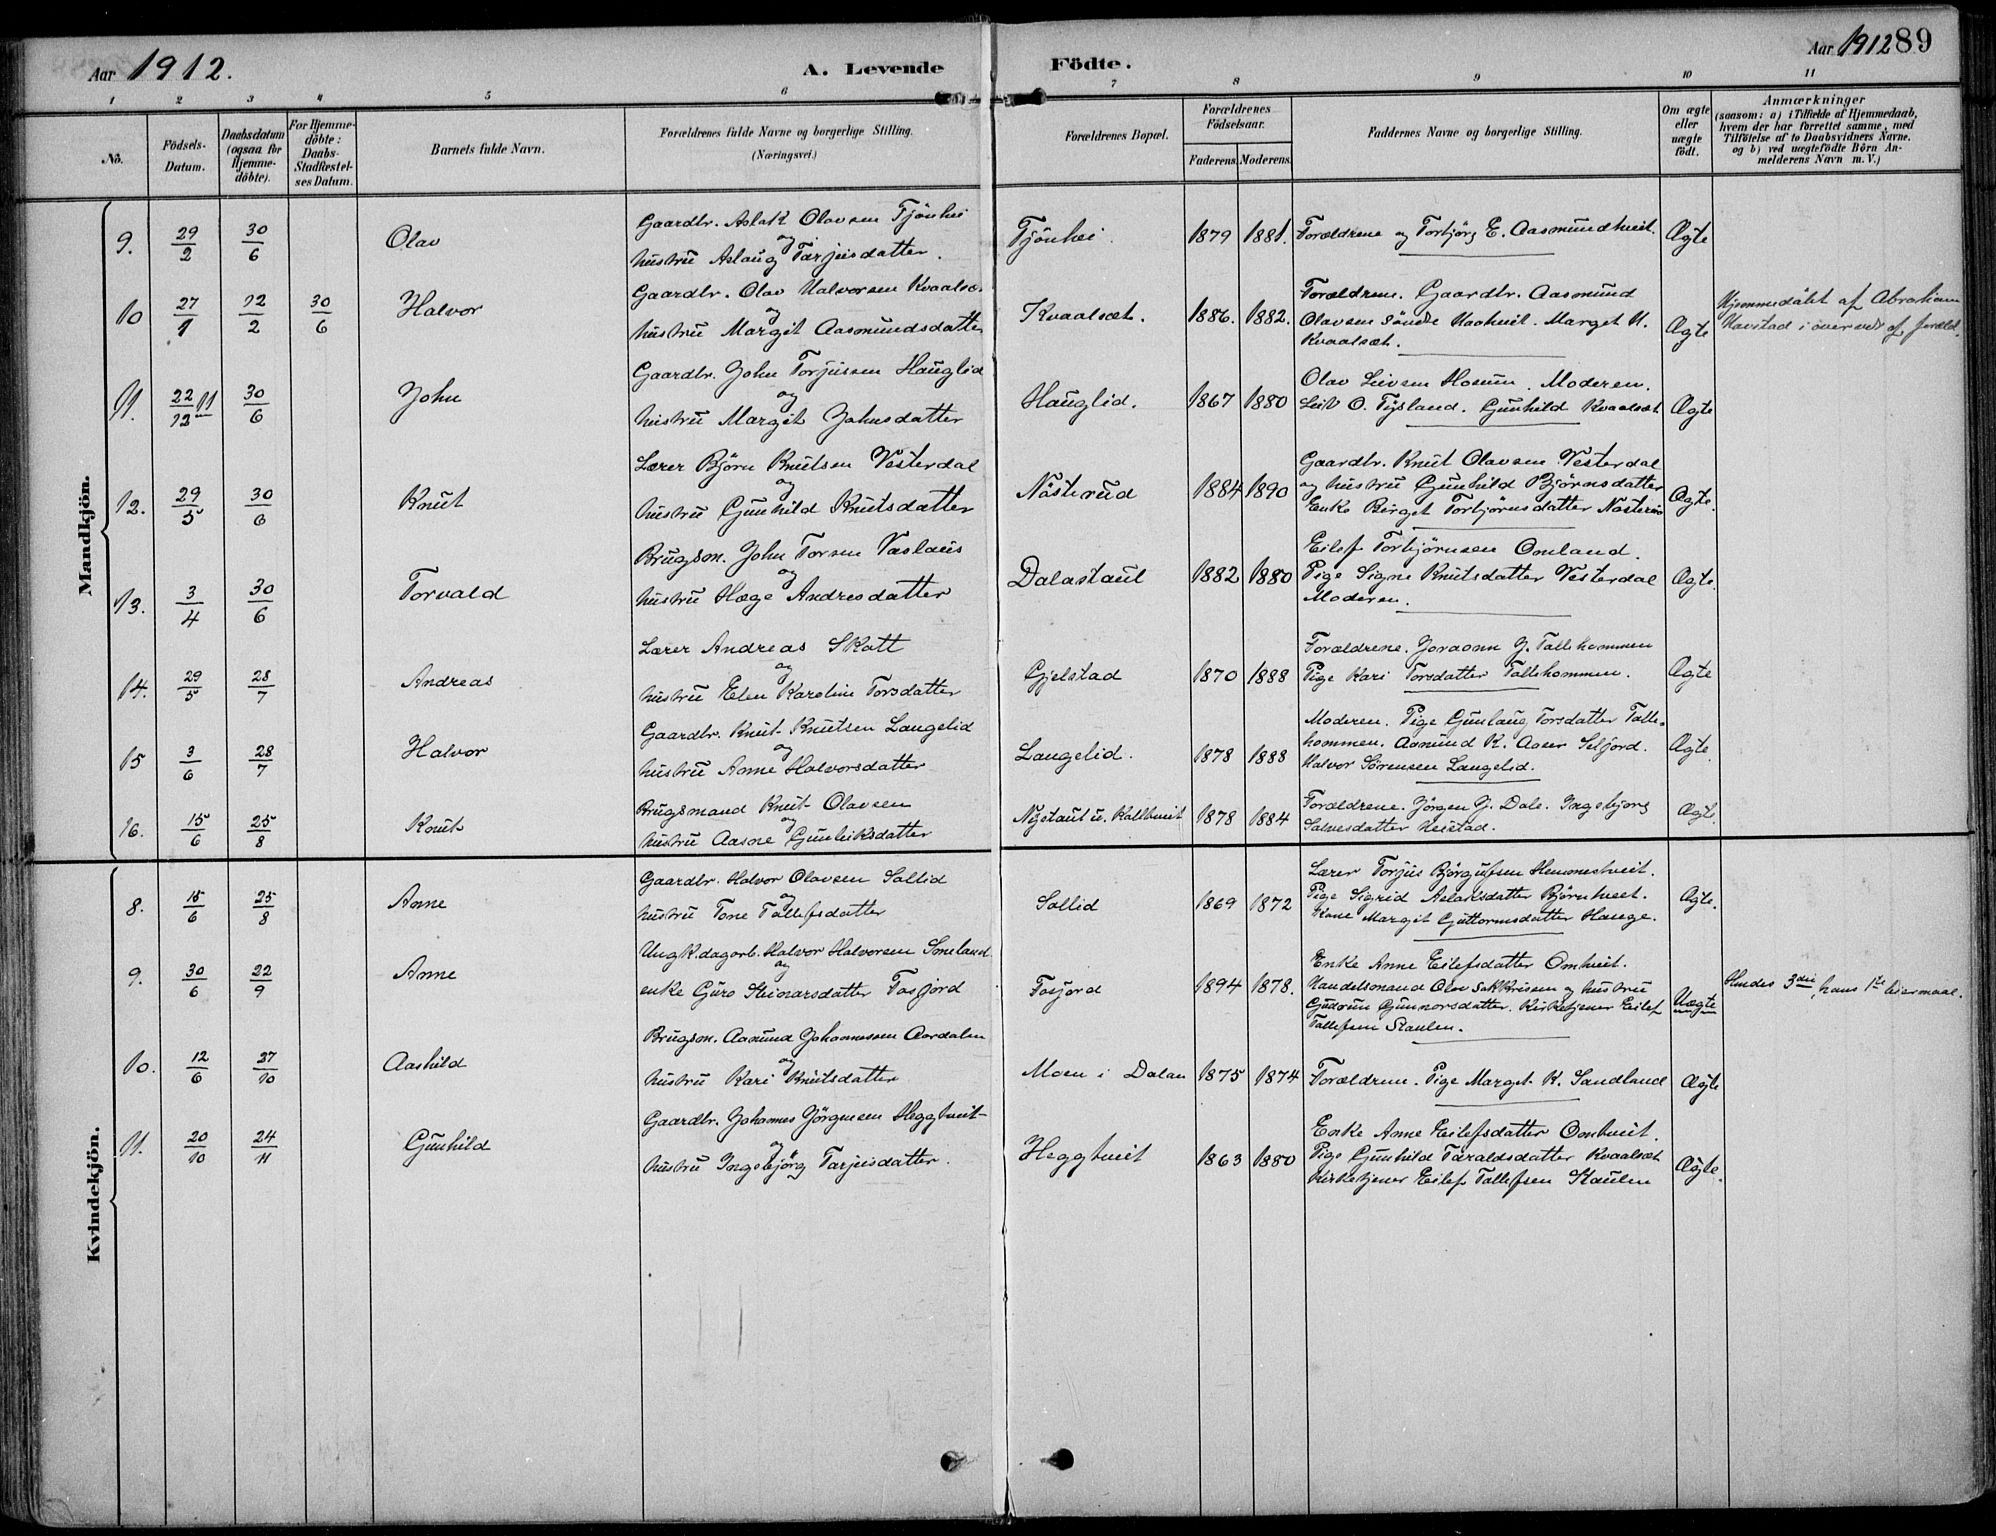 Aar 1912.
A. Levende Födte.
Aar 1912 89
1 2 3 4 5 6 7 8 9 10 11
Nö.
Födsels-Datum.
Daabsdatum (ogsaa for Hjemme-döbte).
For Hjemme-döbte: Daabs-Stadfæstel-ses Datum.
Barnets fulde Navn.
Forældrenes fulde Navne og borgerlige Stilling. (Næringsvei.)
Forældrenes Bopæl.
Forældrenes Födselsaar.
Faderens. Moderens.
Faddernes Navne og borgerlige Stilling.
Om ægte eller uægte födt.
Anmærkninger
(saasom: a) i Tilfælde af Hjemmedaab, hvem der har forrettet samme, med Tilföielse af to Daabsvidners Navne. og b) ved uægtefödte Börn An-melderens Navn m. V.)
Mandkjön.
9. 29/2 30/6 Olav
Gaardbr. Aslak Olavsen Tjönhei
og
hustru Aslaug Tarjeisdatter.
Tjönhei. 1879 1881.
Forældrene og Torbjörg E. Aasmundtveit.
Ægte
10 27/1 12/2 30/6 Halvor
Gaardbr. Olav Halvorsen Kvaalsæt
og
hustru Margit Aasmundsdatter
Kvaalsæt. 1886. 1882.
Forældrene. Gaardbr. Aasmund
Olavsen Söndre Haatveit. Marget H.
Kvaalsæt.
Ægte
Hjemmedöbt af Abraham
Havstad i overvær af foræld.
11. 22/12 11 30/6 John
Gaardbr. John Torjussen Hauglid
og
hustru Margit Johnsdatter
Hauglid. 1867 1880
Olav Leivsen Mosum. Moderen.
Leiv O. Tysland. Gunhild Kvaalsæt
Ægte
12. 29/5 30/6 Knut
Lærer Björn Knutsen Vesterdal
og
hustru Gunhild Knutsdatter
Nösterud 1884 1890
Gaardbr. Knut Olavsen Vesterdal
og hustru Gunhild Björnsdatter
Enke Birget Torbjörnsdatter Nösterud
Ægte.
13. 3/4 30/6 Torvald
Brugsm. John Torsen Vaslaus
og
hustru Hæge Andresdatter
Dalastaul 1882 1880
Eilef Torbjörnsen Omland.
Pige Signe Knutsdatter Vesterdal
Moderen.
Ægte.
14. 29/5 28/7 Andreas
Lærer Andreas Skott
og
hustru Elen Karoline Torsdatter
Gjelstad 1870 1888
Forældrene. Joraann J. Tallehommen
Pige Kari Torsdatter Tallehommen.
Ægte
15 3/6 28/7 Halvor
Gaardbr. Knut Knutsen Langelid
og
hustru Anne Halvorsdatter
Langelid. 1878 1888
Moderen. Pige Gunlaug Torsdatter Talle-
hommen. Aasmund K. Aaser Seljord.
Halvor Sörensen Langelid.
Ægte.
16. 15/6 25/8 Knut
Brugsmand Knut Olavsen
og
hustru Aasne Gunleiksdatter
Nystaul u. Kalltveit 1878 1884
Forældrene. Jörgen J. Dale. Ingebjorg
Salvesdatter Heistad.
Ægte.
Kvindekjön.
8. 15/6 25/8 Anne
Gaardbr. Halvor Olavsen Sollid
og
hustru Tone Tallefsdatter
Sollid 1869 1872
Lærer Torjus Björgufsen Hemmestveit.
Pige Sigrid Aslaksdatter Björntveit.
Kone Margit Guttormsdatter Hauge.
Ægte.
9. 30/6 22/9 Anne
Ungk. dagarb. Halvor Halvorsen Smeland
og
enke Guro Steinarsdatter Fosjord
Fosjord 1894 1878.
Enke Anne Eilefsdatter Omtveit.
Handelsmand Olav Sakkrisen og hustru
Gudrun Gunnarsdatter. Kirketjener Eilef
Tallefsen Staulen.
Uægte
Hendes 3die, hans 1ste leiermaal.
10. 12/6 27/10 Aashild
Brugsm. Aasmund Johannessen Aardalen
og
hustru Kari Knutsdatter
Moen i Dalen 1875 1874
Forældrene. Pige Marget K. Sandland
Ægte
11. 20/10 24/11 Gunhild
Gaardbr. Johannes Jörgensen Heggtveit
og
hustru Ingebjörg Tarjeisdatter.
Heggtveit 1863 1880
Enke Anne Eilefsdatter Omtveit.
Pige Gunhild Taraldsdatter Kvaalsæt
Kirketjener Eilef Tallefsen Staulen
Ægte.